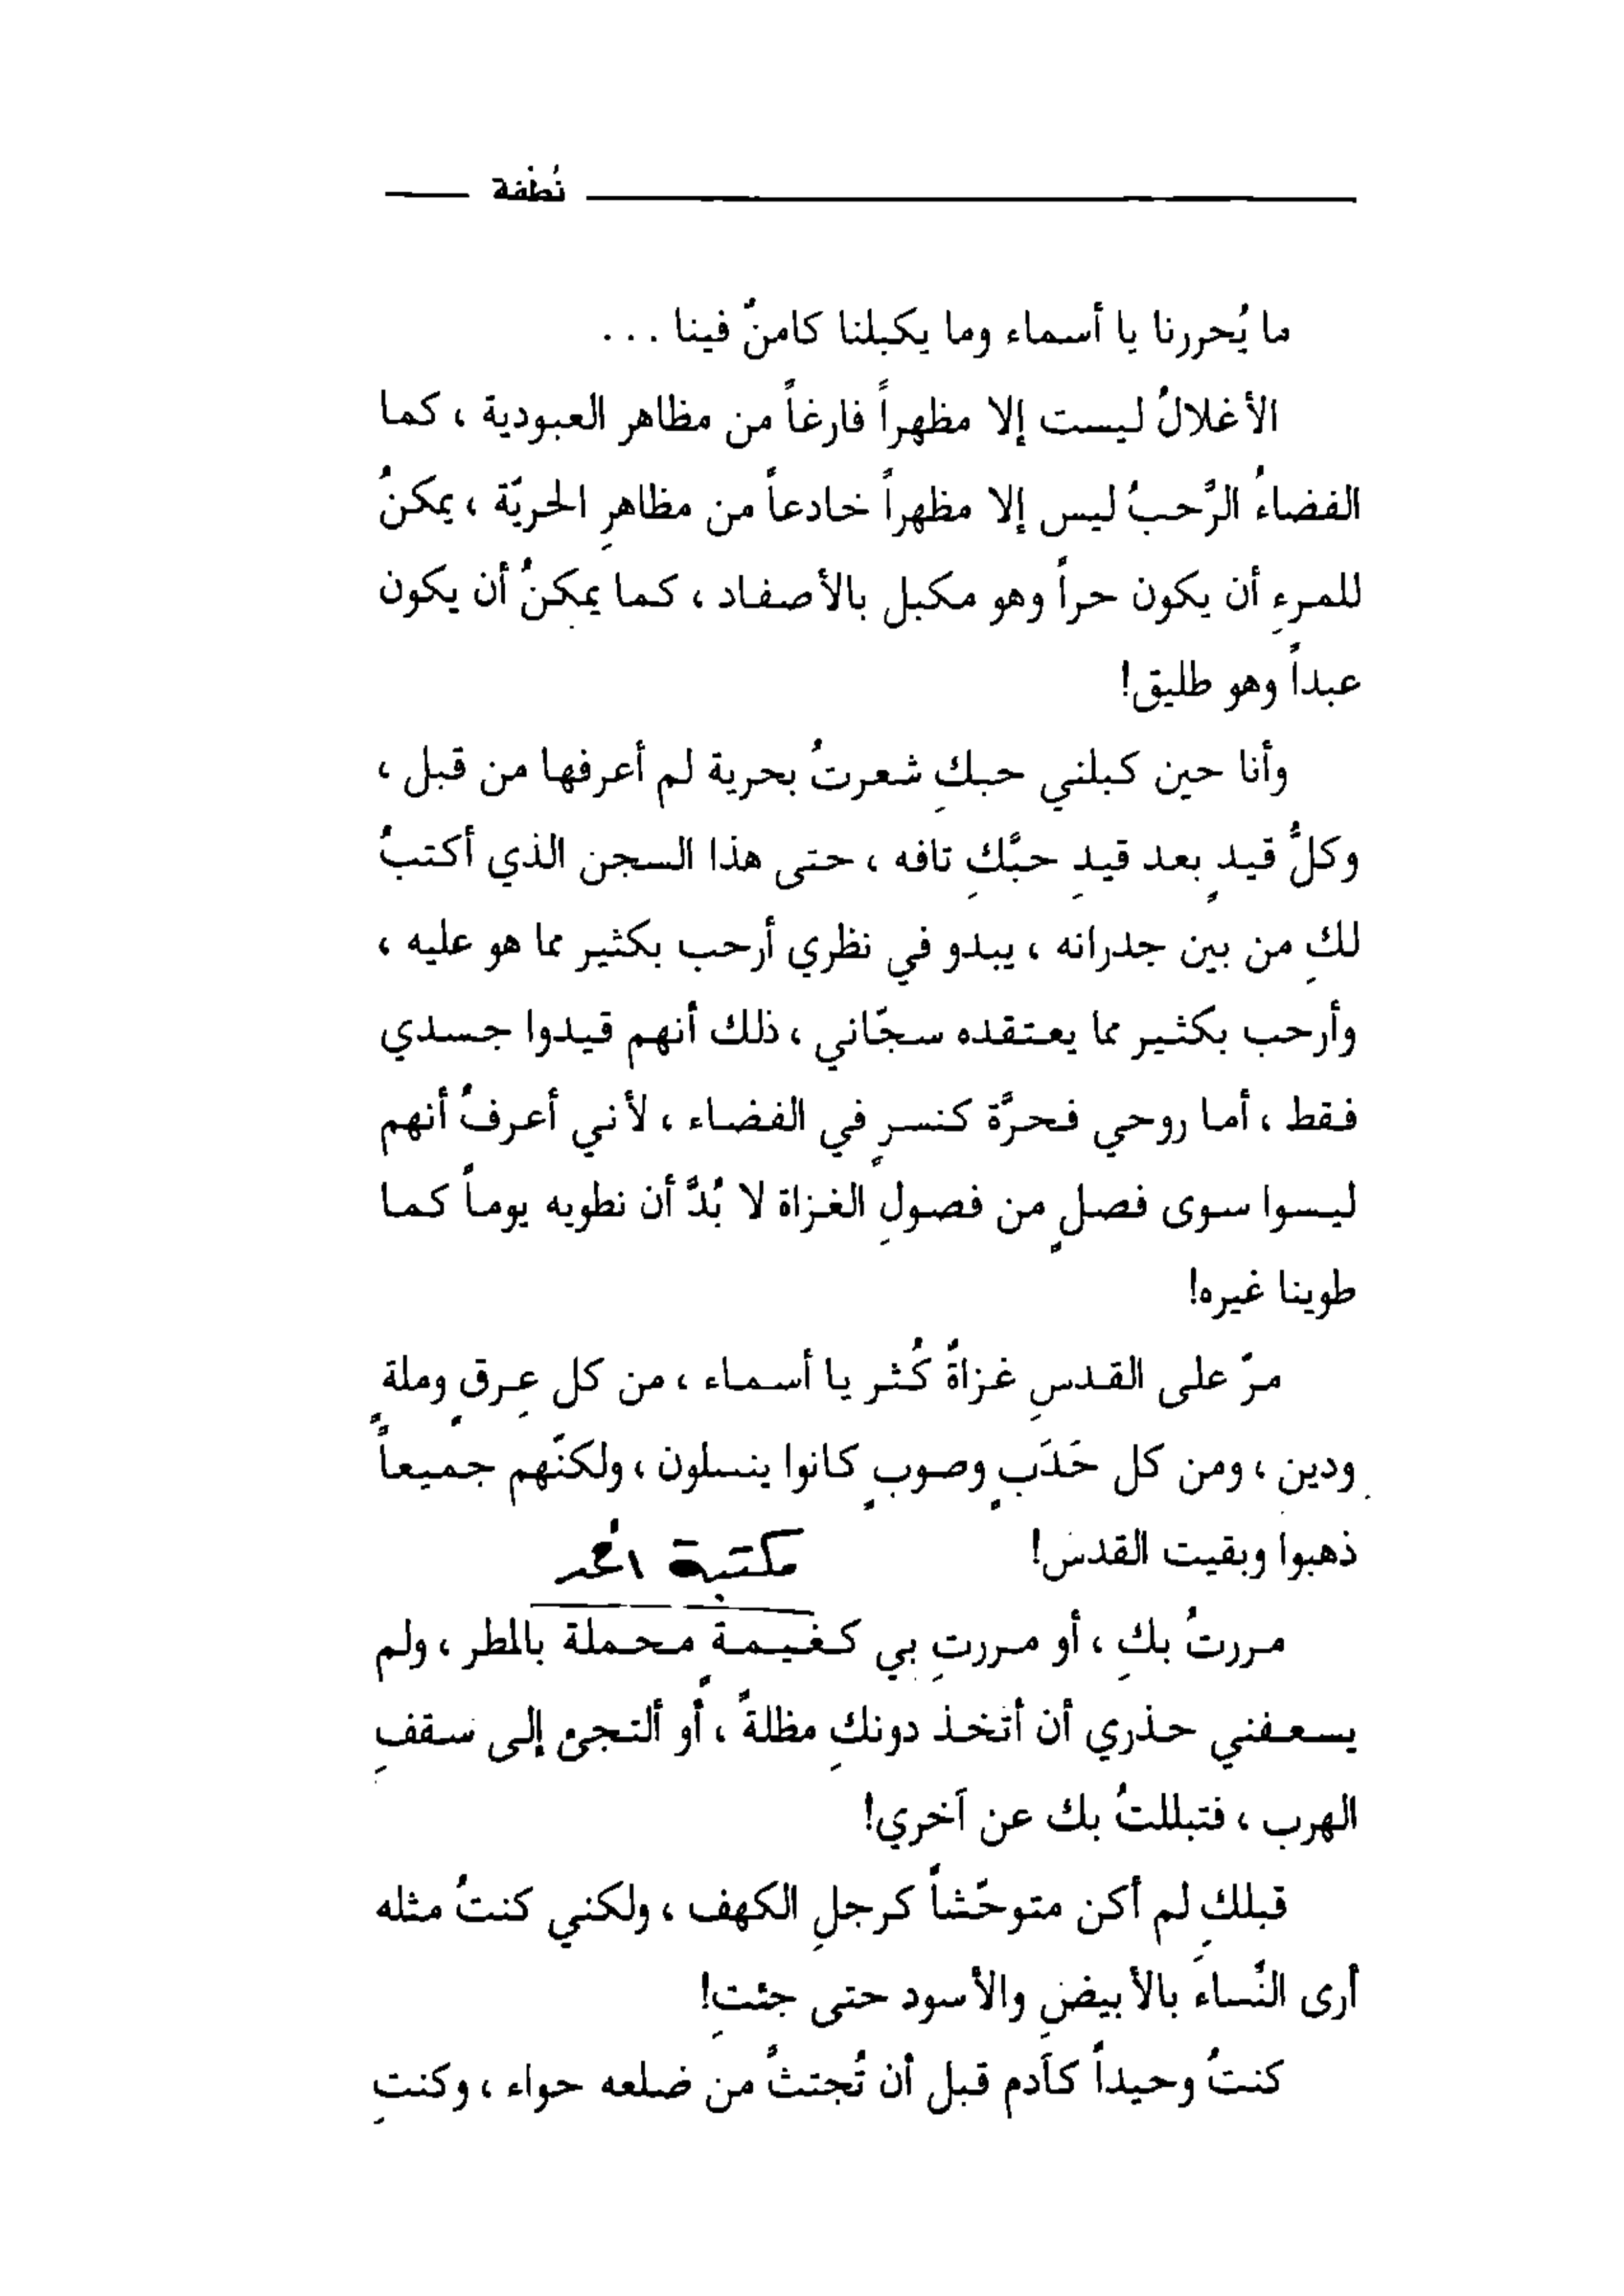 نُطْفة
ما يُحررنا يا أسماء وما يكبلنا كامنٌ فينا . . .
الأغلالُ ليست إلا مظهراً فارغاً من مظاهر العبودية ، كما
الفضاءُ الرَّحبُ ليس إلا مظهراً خادعاً من مظاهرِ الحريّة ، يمكنُ
للمرءِ أن يكون حراً وهو مكبل بالأصفاد ، كما يمكنُ أن يكون
عبداً وهو طليق!
وأنا حين كبلني حبكِ شعرتُ بحرية لم أعرفها من قبل ،
وكلُّ قيدٍ بعد قيدِ حبِّكِ تافه ، حتى هذا السجن الذي أكتبُ
لكِ من بين جدرانه ، يبدو في نظري أرحب بكثير مما هو عليه ،
وأرحب بكثير مما يعتقده سجّاني ، ذلك أنهم قيدوا جسدي
فقط ، أما روحي فحرَّة كنسرٍ في الفضاء ، لأني أعرفُ أنهم
ليسوا سوى فصلٍ من فصولِ الغزاة لا بُدَّ أن نطويه يوماً كما
طوينا غيره!
مرّ على القدسِ غزاةٌ كُثر يا أسماء ، من كل عِرقٍ وملةٍ
ودين ، ومن كل حَدَبٍ وصوبٍ كانوا ينسلون ، ولكنّهم جميعاً
ذهبوا وبقيت القدس!
مكتبة أحمد
مررتُ بكِ ، أو مررتِ بي كغيمةٍ محملة بالمطر ، ولم
يسعفني حذري أن أتخذ دونكِ مظلةً ، أو ألتجئ إلى سقفِ
الهرب ، فتبللتُ بك عن آخري!
قبلكِ لم أكن متوحّشاً كرجلِ الكهف ، ولكني كنتُ مثله
أرى النِّساءَ بالأبيضِ والأسود حتى جئتِ!
كنتُ وحيداً كآدم قبل أن تُجتثَّ من ضلعه حواء ، وكنتِ